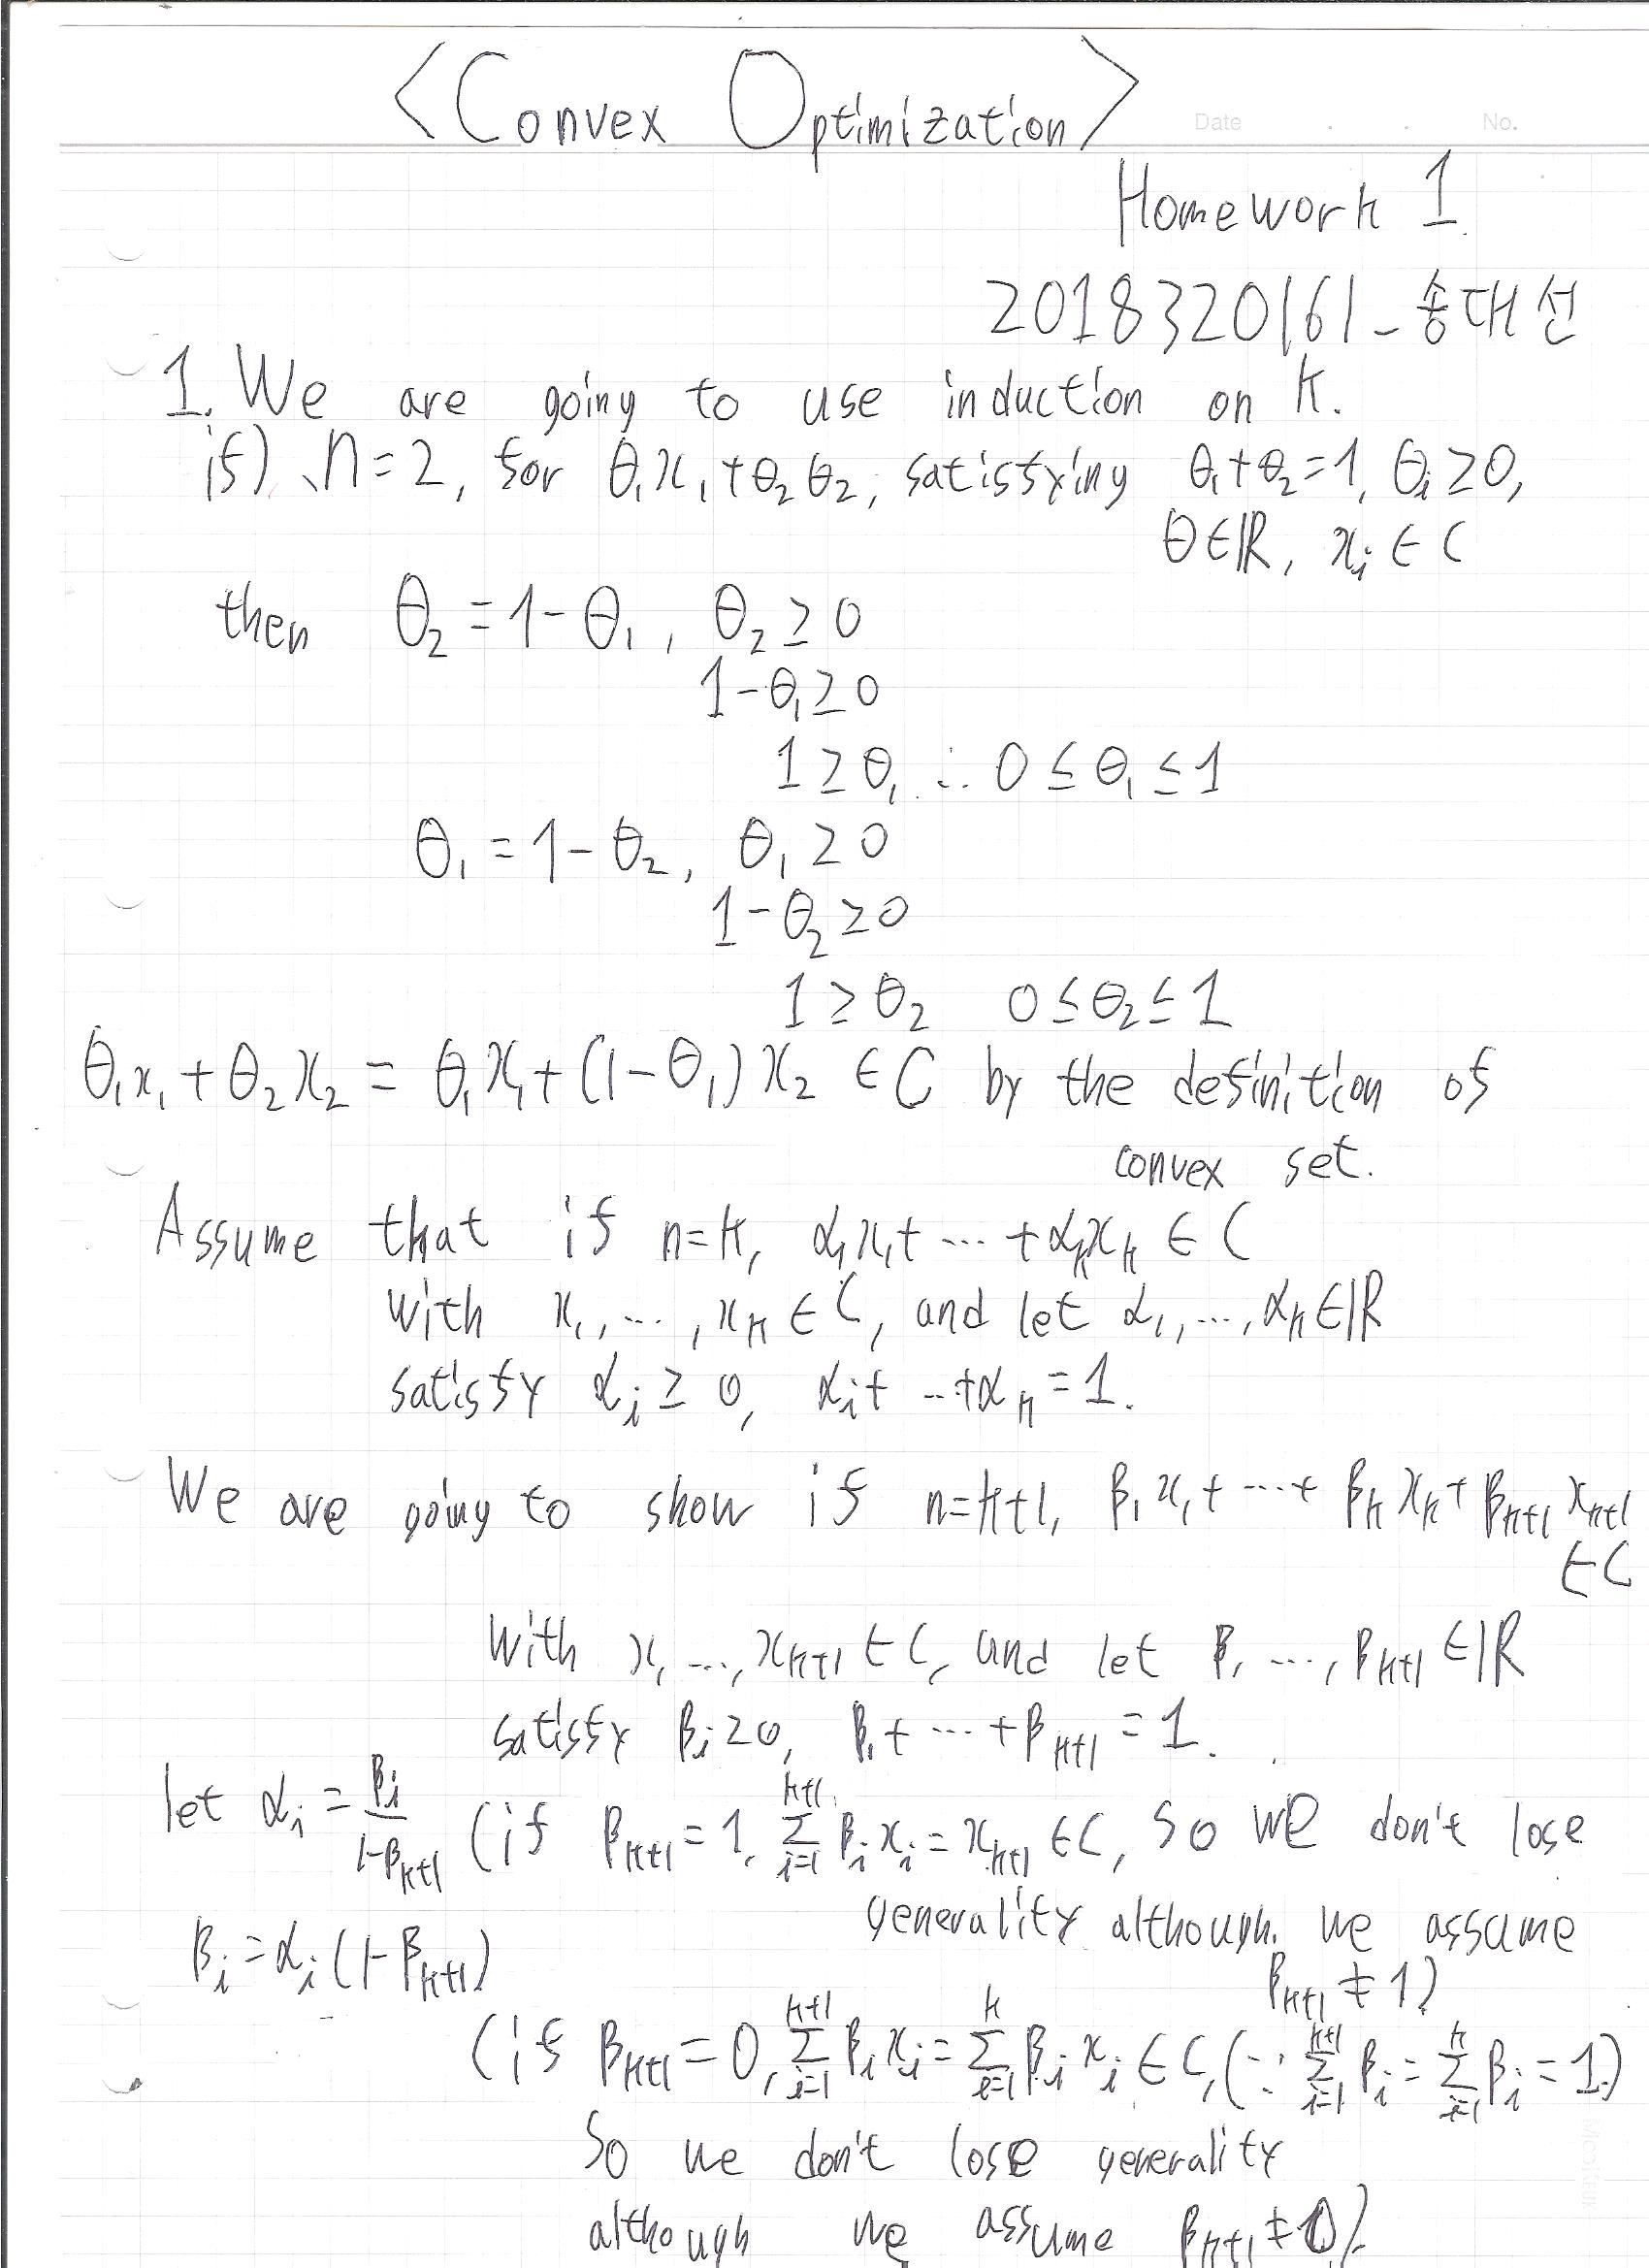 <Convex Optimization>
Date . . No.
Homework 1.
2018320161 - 송대선
1. We are going to use induction on k.
if) n=2, for θ₁x₁+θ₂θ₂, satisfying θ₁+θ₂=1, θᵢ≥0,
θ∈ℝ, xᵢ∈C
then θ₂=1-θ₁, θ₂≥0
1-θ₁≥0
1≥θ₁ ∴ 0≤θ₁≤1
θ₁=1-θ₂, θ₁≥0
1-θ₂≥0
1≥θ₂ 0≤θ₂≤1
θ₁x₁+θ₂x₂ = θ₁x₁+(1-θ₁)x₂ ∈C by the definition of
convex set.
Assume that if n=k, α₁x₁+ ⋯ +αₖxₖ ∈ C
with x₁, ⋯, xₖ ∈ C, and let α₁, ⋯, αₖ∈ℝ
satisfy αᵢ ≥ 0, αᵢ+ ‥+αₖ=1.
We are going to show if n=k+1, β₁x₁+ ⋯+ βₖxₖ+βₖ₊₁xₖ₊₁
∈C
with x₁ ⋯, xₖ₊₁ ∈ C, and let β₁ ⋯, βₖ₊₁ ∈ℝ
satisfy βᵢ≥0, β₁+ ⋯ +βₖ₊₁ = 1.
let αᵢ = βᵢ/(1-βₖ₊₁) (if βₖ₊₁=1, Σᵢ₌₁ᵏ⁺¹ βᵢxᵢ = xₖ₊₁ ∈C, so we don't lose
generality although we assume
βᵢ=αᵢ(1-βₖ₊₁)
βₖ₊₁≠1)
(if βₖ₊₁=0, Σᵢ₌₁ᵏ⁺¹ βᵢxᵢ = Σᵢ₌₁ᵏ βᵢxᵢ ∈ C, (∵ Σᵢ₌₁ᵏ⁺¹ βᵢ = Σᵢ₌₁ᵏ βᵢ = 1.)
So we don't lose generality
although we assume βₖ₊₁≠0).